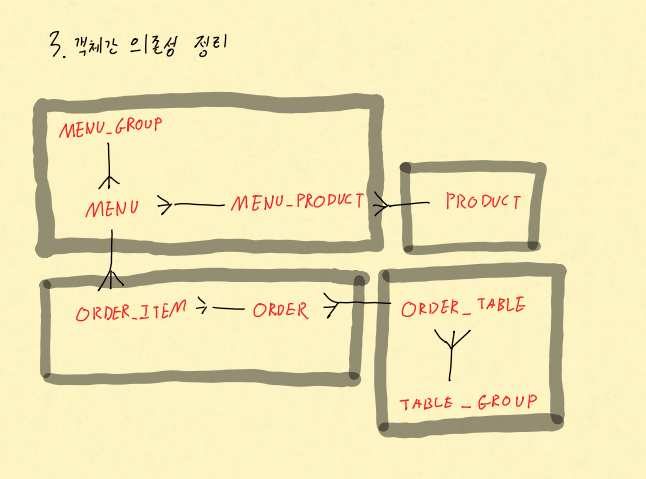 3. 객체간 의존성 정리
MENU_GROUP
MENU
MENU_PRODUCT
PRODUCT
ORDER_ITEM
ORDER
ORDER_TABLE
TABLE_GROUP